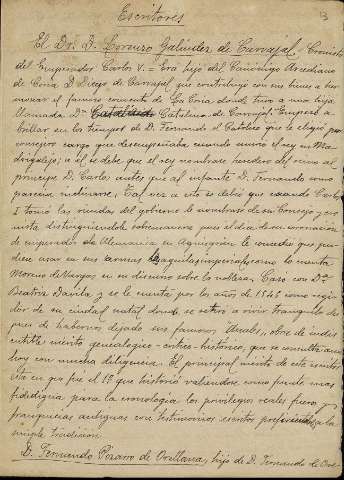 Escritores
3
El Dr. D. Lorenzo Galíndez de Carvajal, Cronista
del Emperador Carlos V. = Era hijo del Canónigo Arcediano
de Coria D. Diego de Carvajal que contribuyó con sus bienes a her-
mosear el famoso convento de la Coria donde tuvo a una hija
llamada Dª Catalina de Carvajal. Empezó a
brillar en los tiempos de D. Fernando el Católico que le eligió por
consejero cargo que desempeñaba cuando murió el rey en Ma-
drigalejo; a él se debe que el rey nombrase heredero del reino al
príncipe D. Carlos antes que al infante D. Fernando como
parecía inclinarse. Tal vez a esto se debió que cuando Carlos
I tomó las riendas del gobierno le nombrase de su Consejo y cro-
nista distinguiéndole sobremanera pues el día de su coronación
de emperador de Alemania en Aquisgrán le concedió que pu-
diera usar en sus armas las águilas imperiales como lo cuenta
Moreno de Vargas en su discurso sobre la nobleza. Casó con Dª
Beatriz Dávila y se le cuenta por los años de 1525 como regi-
dor de su ciudad natal donde se retiró a vivir tranquilo des-
pués de habernos dejado sus famosos Anales, obra de indis-
cutible mérito genealógico-crítico-histórico, que se consulta aún
hoy con mucha diligencia. El principal mérito de este cronis-
ta es que fué el 1º que historió valiéndose como fondo más
fidedigno para la cronología los privilegios reales, fueros,
franquicias antiguas con testimonios escritos prefiriéndolos a la
simple tradición.
D. Fernando Pizarro de Orellana, hijo de D. Fernando de Ore-